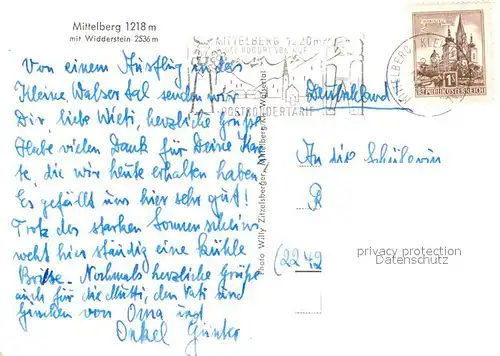 Mittelberg 1218 m
mit Widderstein 2536 m
MITTELBERG 1220 m
POSTSONDERTARIF
REPUBLIK ÖSTERREICH
Von einem Ausflug in das
Kleine Walsertal senden wir
Dir, liebe herzliche Grüße
Habe vielen Dank für Deine Kar-
te, die wir heute erhalten haben.
Es gefällt uns hier sehr gut!
Trotz des starken Sonnenscheins
weht hier ständig eine kühle
Brise. Nochmals herzliche Grüße
auch für die Mutti, den Vati und
von Oma und
Onkel Günter
Photo Willy Zitzelsberger, Mittelberg Kl. Walsertal
Deutschland
An die Schülerin
R
(2242
privacy protection
Datenschutz